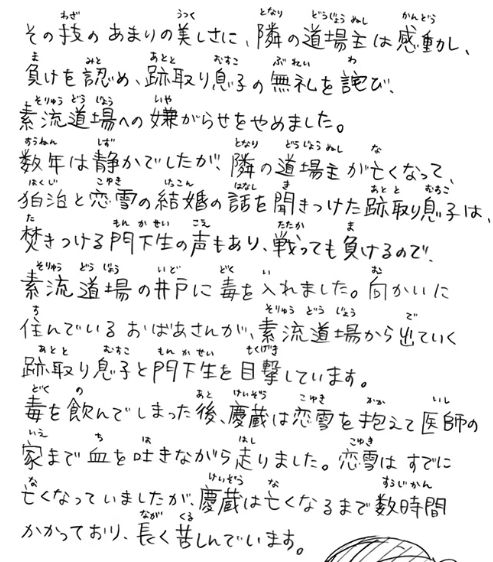 その技のあまりの美しさに、隣の道場主は感動し、
負けを認め、跡取り息子の無礼を詫び、
素流道場への嫌がらせをやめました。
数年は静かでしたが、隣の道場主が亡くなって、
狛治と恋雪の結婚の話を聞きつけた跡取り息子は、
焚きつける門下生の声もあり、戦っても負けるので、
素流道場の井戸に毒を入れました。向かいに
住んでいるおばあさんが、素流道場から出ていく
跡取り息子と門下生を目撃しています。
毒を飲んでしまった後、慶蔵は恋雪を抱えて医師の
家まで血を吐きながら走りました。恋雪はすでに
亡くなっていましたが、慶蔵は亡くなるまで数時間
かかっており、長く苦しんでいます。